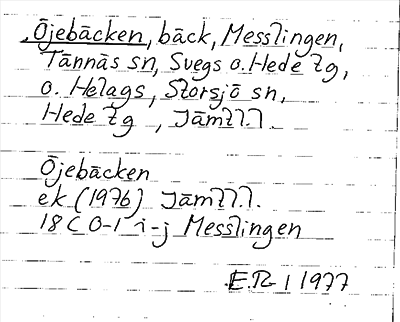 Öjebäcken, bäck, Messlingen,
Tännäs sn, Svegs o. Hede tg,
o. Helags, Storsjö sn,
Hede tg, Jämtl.
Öjebäcken
ek (1976) Jämtl.
18 C 0-1 i-j Messlingen
E.R. 1977